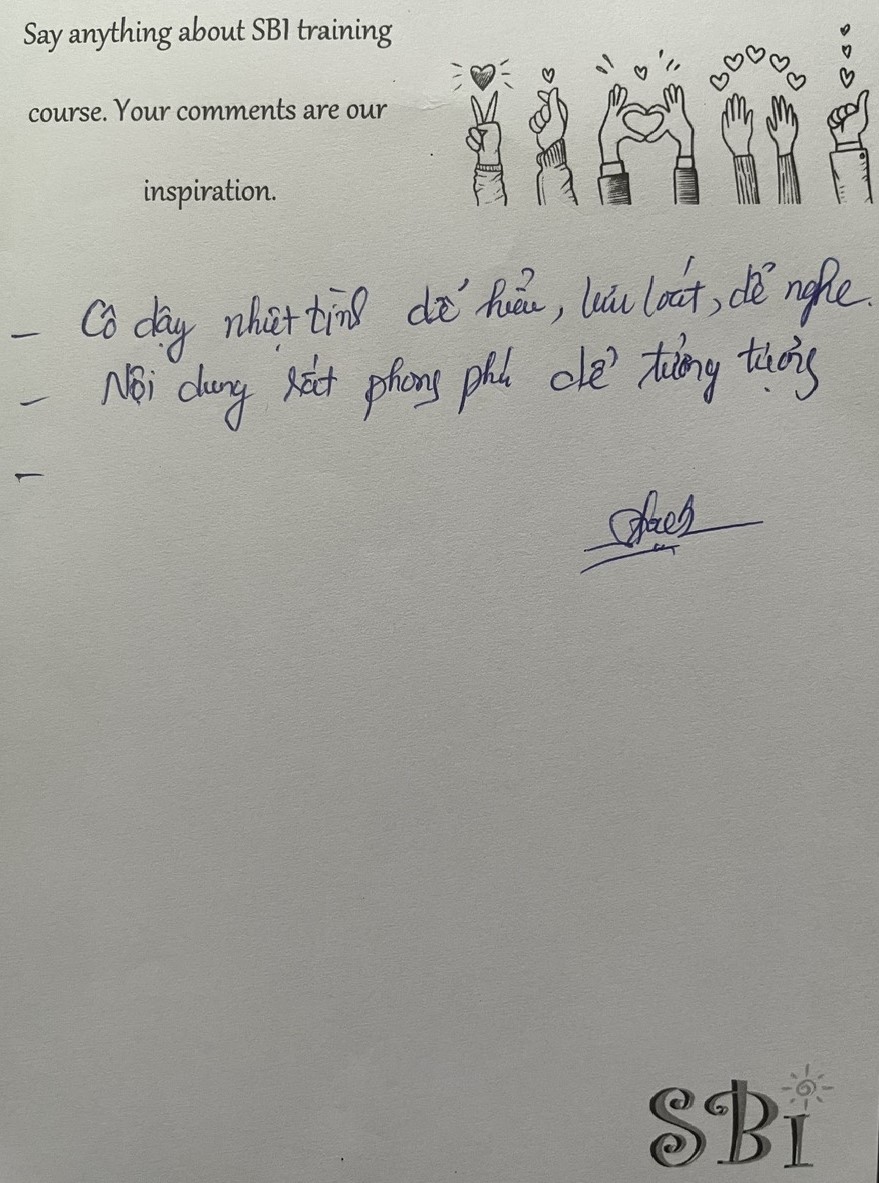 Say anything about SBI training
course. Your comments are our
inspiration.
- Cô dậy nhiệt tình dễ hiểu, lưu loát, dễ nghe.
- Nội dung rất phong phú dễ tưởng tượng
-
SBi